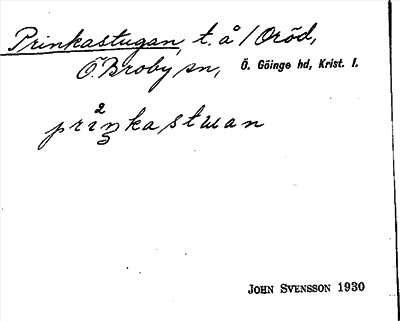 Prinkastugan, t. å 1 Oröd,
Ö. Broby sn, Ö. Göinge hd, Krist. l.
prinkastuan
JOHN SVENSSON 1930